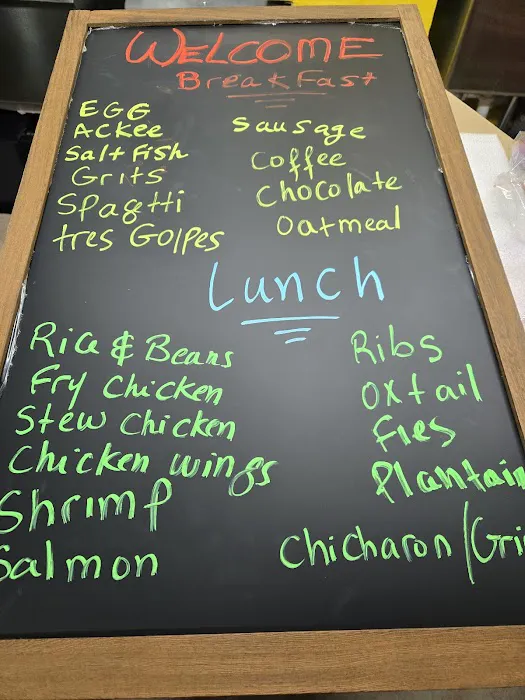 WELCOME
BreakFast
EGG
ACKee
Salt Fish
Grits
Spagtti
tres Golpes
Sausage
Coffee
Chocolate
Oatmeal
Lunch
Rice & Beans
Fry Chicken
Stew Chicken
Chicken wings
Shrimp
Salmon
Ribs
Oxtail
Fies
Plantain
Chicharon/Gri